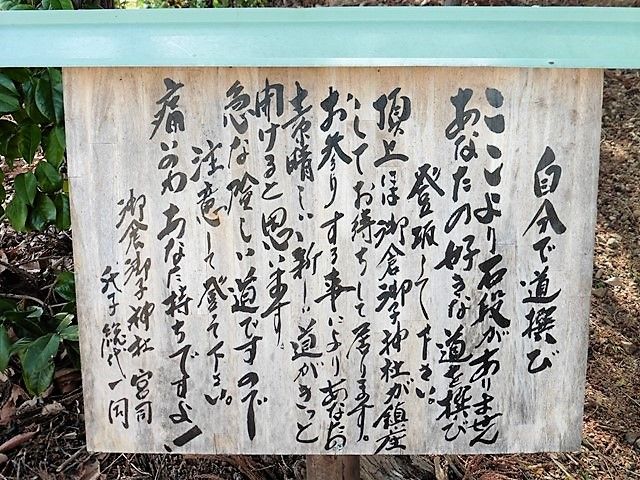 自分で道撰び
ここより石段がありません
あなたの好きな道を撰び
登坂して下さい。
頂上には御倉御子神社が鎮座
してお待ちして居ります。
お参りする事によりあなたの
素晴しい新しい道がきっと
開けると思います
急な険しい道ですので
注意して登て下さい。
痛いのわあなた持ちですよ!
御倉御子神社 宮司
氏子 総代一同